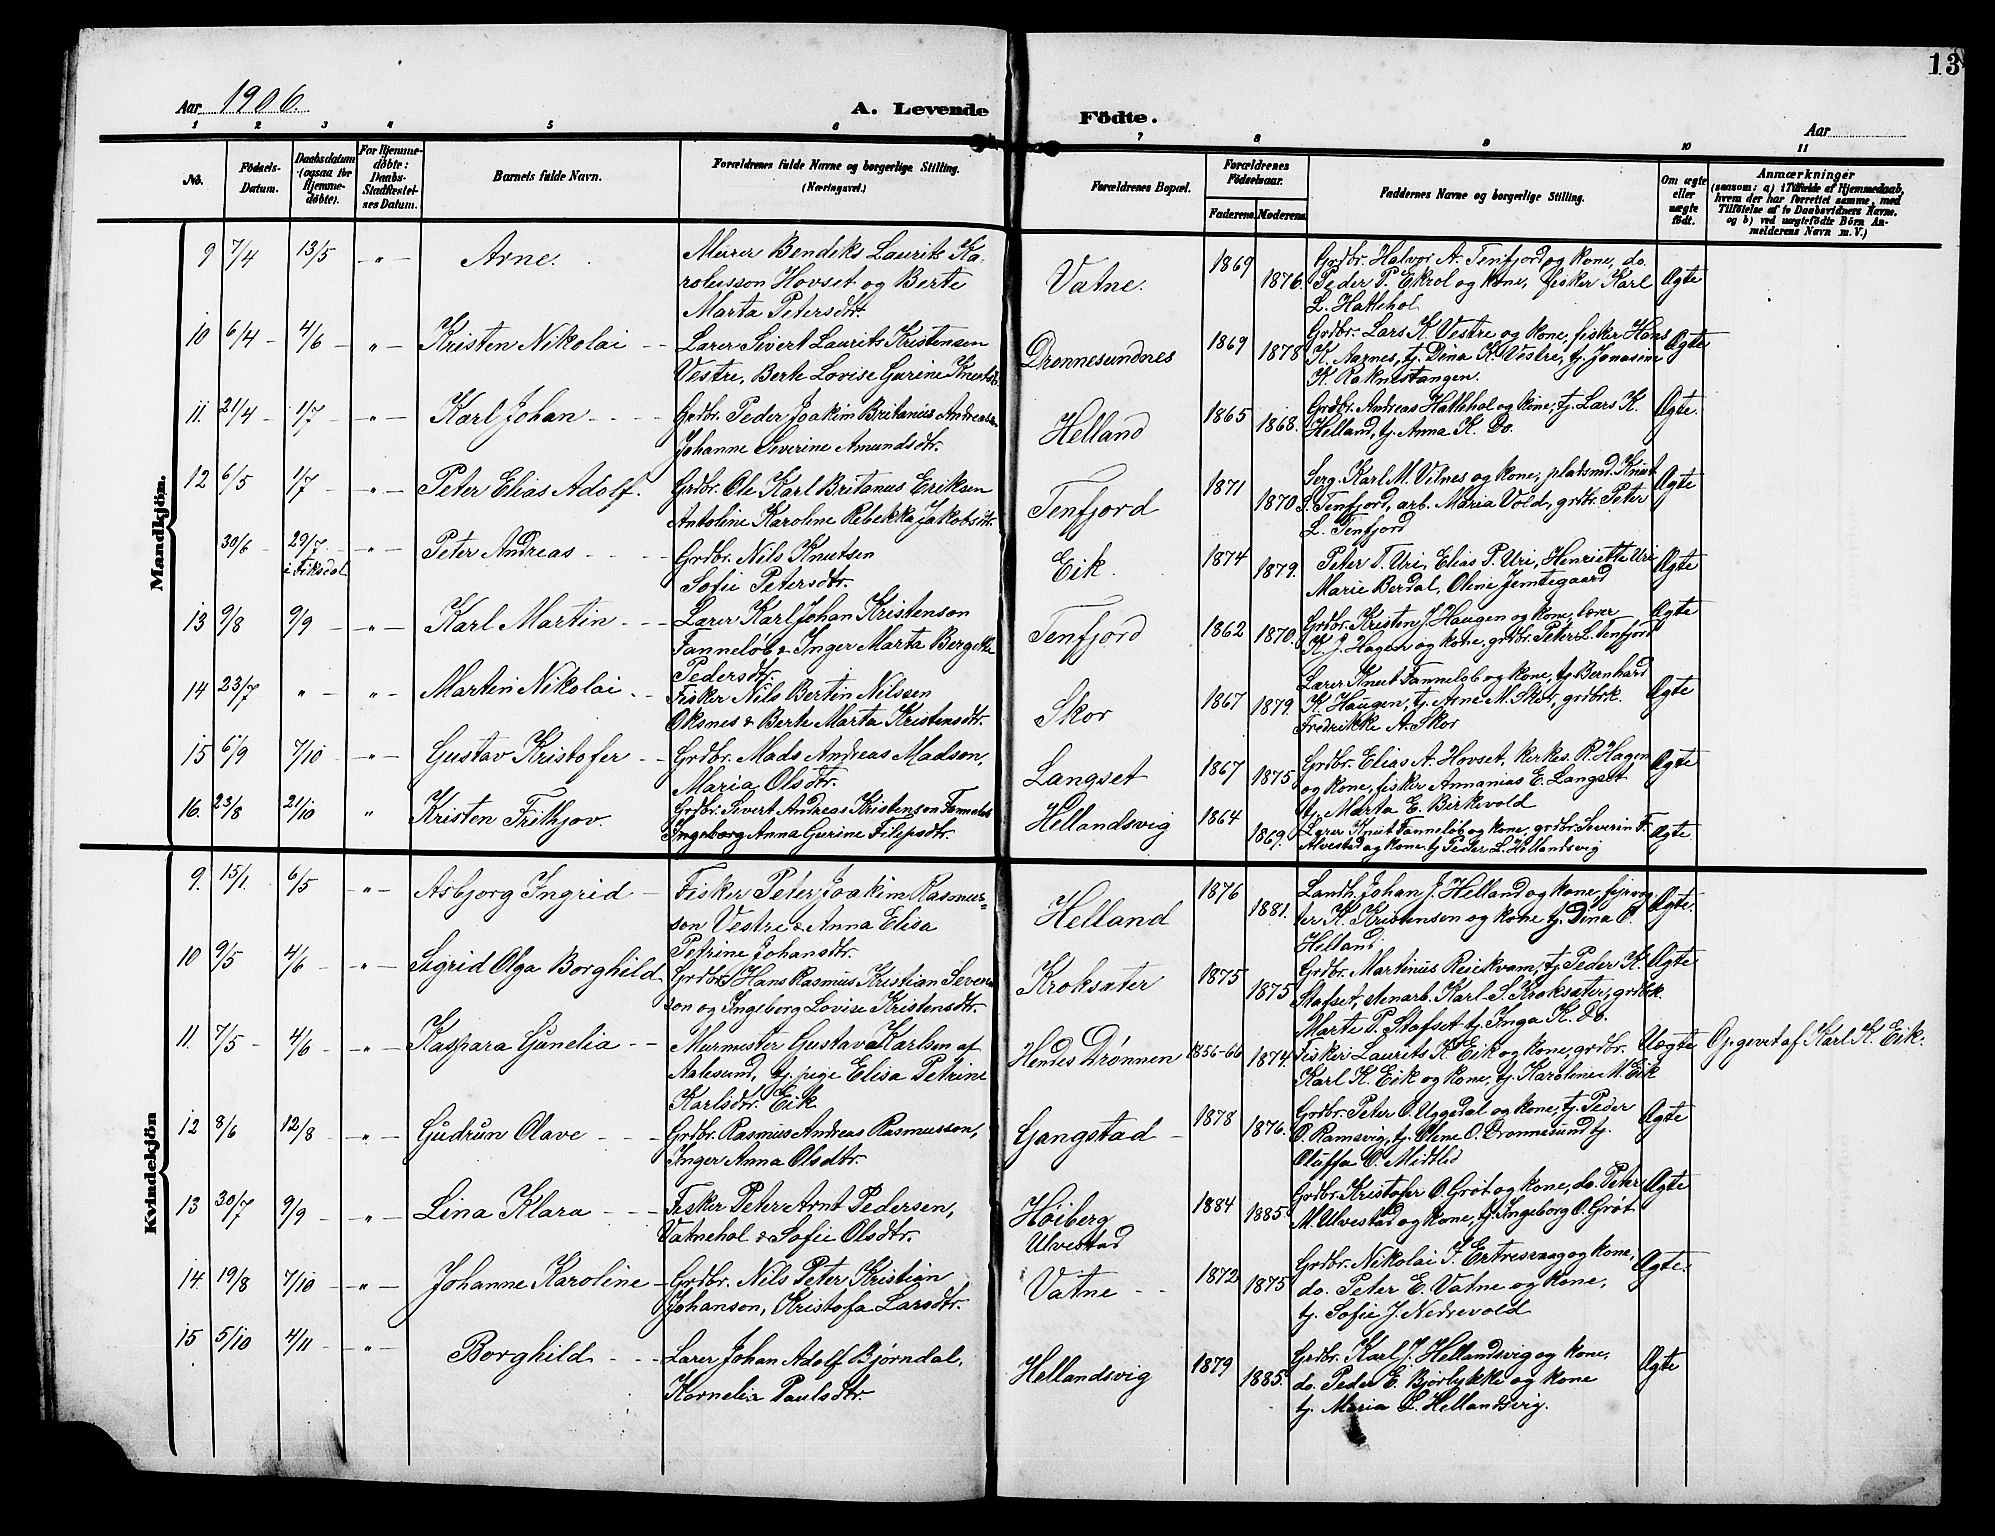 13
Aar 1906.
A. Levende Födte.
Aar
1 2 3 4 5 6 7 8 9 10 11
No.
Födsels-Datum.
Daabsdatum (ogsaa for Hjemme-döbte).
For Hjemme-döbte: Daabs-Stadfæstel-ses Datum.
Barnets fulde Navn.
Forældrenes fulde Navne og borgerlige Stilling. (Næringsvei.)
Forældrenes Bopæl.
Forældrenes Födselsaar.
Faderens. Moderens.
Faddernes Navne og borgerlige Stilling.
Om ægte eller uægte födt.
Anmærkninger
(saasom: a) i Tilfælde af Hjemmedaab,
hvem der har forrettet samme, med
Tilföielse af to Daabsvidners Navne,
og b) ved uægtefödte Börn An-
melderens Navn m. V.)
Mandkjön.
9 7/4 13/5 -„- Arne. Murer Bendiks Laurits Ka-
rolusson Hovset og Berte
Marta Petersdtr.
Vatne. 1869 1876. Grdbr. Halvor A. Tenfjord og kone, do.
Peder P. Ekrol og kone, fisker Karl
L. Hattehol
Ægte
10 6/4 - 4/6 - „ - Kristen Nikolai - - Lærer Sivert Laurits Kristensen
Vestre, Berte Lovise Gurine Knutsdtr.
Drønnesundnes 1869 1878 Grdbr. Lars K. Vestre og kone, fisker Hans
K. Aarnes, tj. Dina K. Vestre, tj. Jonasine
K. Raknestangen.
Ægte
11. 21/4 - 1/7 - „ - Karl Johan - - - Grdbr. Peder Joakim Britanius Andreassen
Johanne Severine Amundsdtr.
Helland 1865 1868. Grdbr. Andreas Hattehol og kone, tj. Lars K.
Helland, tj. Anna K. Do.
Ægte.
12 6/5 1/7 - „ - Peter Elias Adolf. Grdbr. Ole Karl Britanus Eriksen
Antoline Karoline Rebekka Jakobsdtr.
Tenfjord 1871 1870 Serg. Karl M. Vilnes og kone, pladsmd. Knut
S. Tenfjord, arb. Maria Vold, grdbr. Peter
L. Tenfjord
Ægte
30/6 - 29/7 i Fiksdal - „ - Peter Andreas - - - Grdbr. Nils Knutsen
Sofie Petersdtr.
Eik. 1874 1879. Peter T. Uri, Elias P. Uri, Henriette Uri
Marie Berdal, Oline Jemtegaard
Ægte
13 9/8 9/9 - „ - Karl Martin - - - Lærer Karl Johan Kristenson
Tanneløb & Inger Marta Bergitte
Pedersdtr.
Tenfjord 1862 1870. Grdbr. Kristen J. Haugen og kone, lærer
K. J. Hagen og kone, grdbr. Peter L. Tenfjord
Ægte
14 23/7 „ - „ - Martin Nikolai - - Fisker Nils Bertin Nilssen
Oksnes & Berte Marta Kristensdtr.
Skor 1867 1879 Lærer Knut Tanneløb og kone, tj. Bernhard
K. Haugen, tj. Arne M. Slot, grdbrk.
Fredrikke A. Skor
Ægte
15 6/9 7/10 - „ - Gustav Kristofer - - Grdbr. Mads Andreas Madson,
Maria Olsdtr.
Langset 1867 1875 Grdbr. Elias A. Hovset, kirkes. R. Hagen
og kone, fisker Annanias E. Langset
tj. Marta E. Birkevold
Ægte
16. 23/8 21/10 „ Kristen Frithjov. Grdbr. Sivert Andreas Kristenson Tanneløb
Ingeborg Anna Gurine Filipsdtr.
Hellandsvig 1864 1869. Lærer Knut Tanneløb og kone, grdbr. Severin F.
Alvestad og kone tj Peder L. Hellandsvig
Ægte
Kvindekjön
9. 15/1. 6/5 - „ - Asbjorg Ingrid - Fisker Peter Joakim Rasmus-
son Vestre & Anna Elisa
Petrine Johansdtr.
Helland 1876 1881. Landh. Johan J. Helland og kone, fyrvog-
ter K. Kristensen og kone tj. Dina O.
Helland.
Ægte.
10 9/5 4/6 - „ - Sigrid Olga Borghild Grdbr. Hans Rasmus Kristian Severin-
son og Ingeborg Lovise Kristensdtr.
Kroksæter 1875 1875 Grdbr. Martinus Reiekvam, tj. Peder K.
Stafset, stenarb. Karl S. Kroksæter, grdbrk.
Marte P. Stafset tj. Inga K. Do.
Ægte
11. 7/5 - 4/6 - „ - Kaspara Gunelia - - Murmester Gustav Karlsen af
Aalesund, tj. pige Elisa Petrine
Karlsdtr. Eik
Hendes Drønnen 1856-66 1874. Fisker Laurits K. Eik og kone, grdbr.
Karl K. Eik og kone, tj. Karoline M. Eik
Uægte Opgevet af Karl K. Eik.
12 8/6 12/8 - „ - Gudrun Olave - - - Grdbr. Rasmus Andreas Rasmusson,
Inger Anna Olsdtr.
Gangstad - 1878 1876. Grdbr. Peter O. Uggedal og kone, tj. Peder
O. Ramsvig, tj. Oline O. Dronnesund tj.
Oluffa O. Midtlid
Ægte
13 30/7 9/9 - „ - Lina Klara - - - Fisker Peter Arnt Pedersen,
Vatnehol & Sofie Olsdtr.
Høiberg
Ulvestad
1884 1885. Grdbr. Kristofer O. Grøt og kone, do. Peter
M. Ulvestad og kone, tj. Ingeborg O. Grøt
Ægte
14. 19/8 7/10 - „ - Johanne Karoline - Grdbr. Nils Peter Kristian
Johanson, Kristofa Larsdtr.
Vatne - - 1872 1875 Grdbr. Nikolai I. Ertresvaag og kone,
do. Peter E. Vatne og kone,
tj. Sofie J. Nedrevold
Ægte.
15 5/10 4/11 - „ - Borghild - - - Lærer Johan Adolf Bjørndal,
Kornelia Paulsdtr.
Hellandsvig 1879 1885. Grdbr. Karl J. Hellandsvig og kone,
do. Peder E. Bjørlykke og kone
tj. Maria L. Hellandsvig.
Ægte